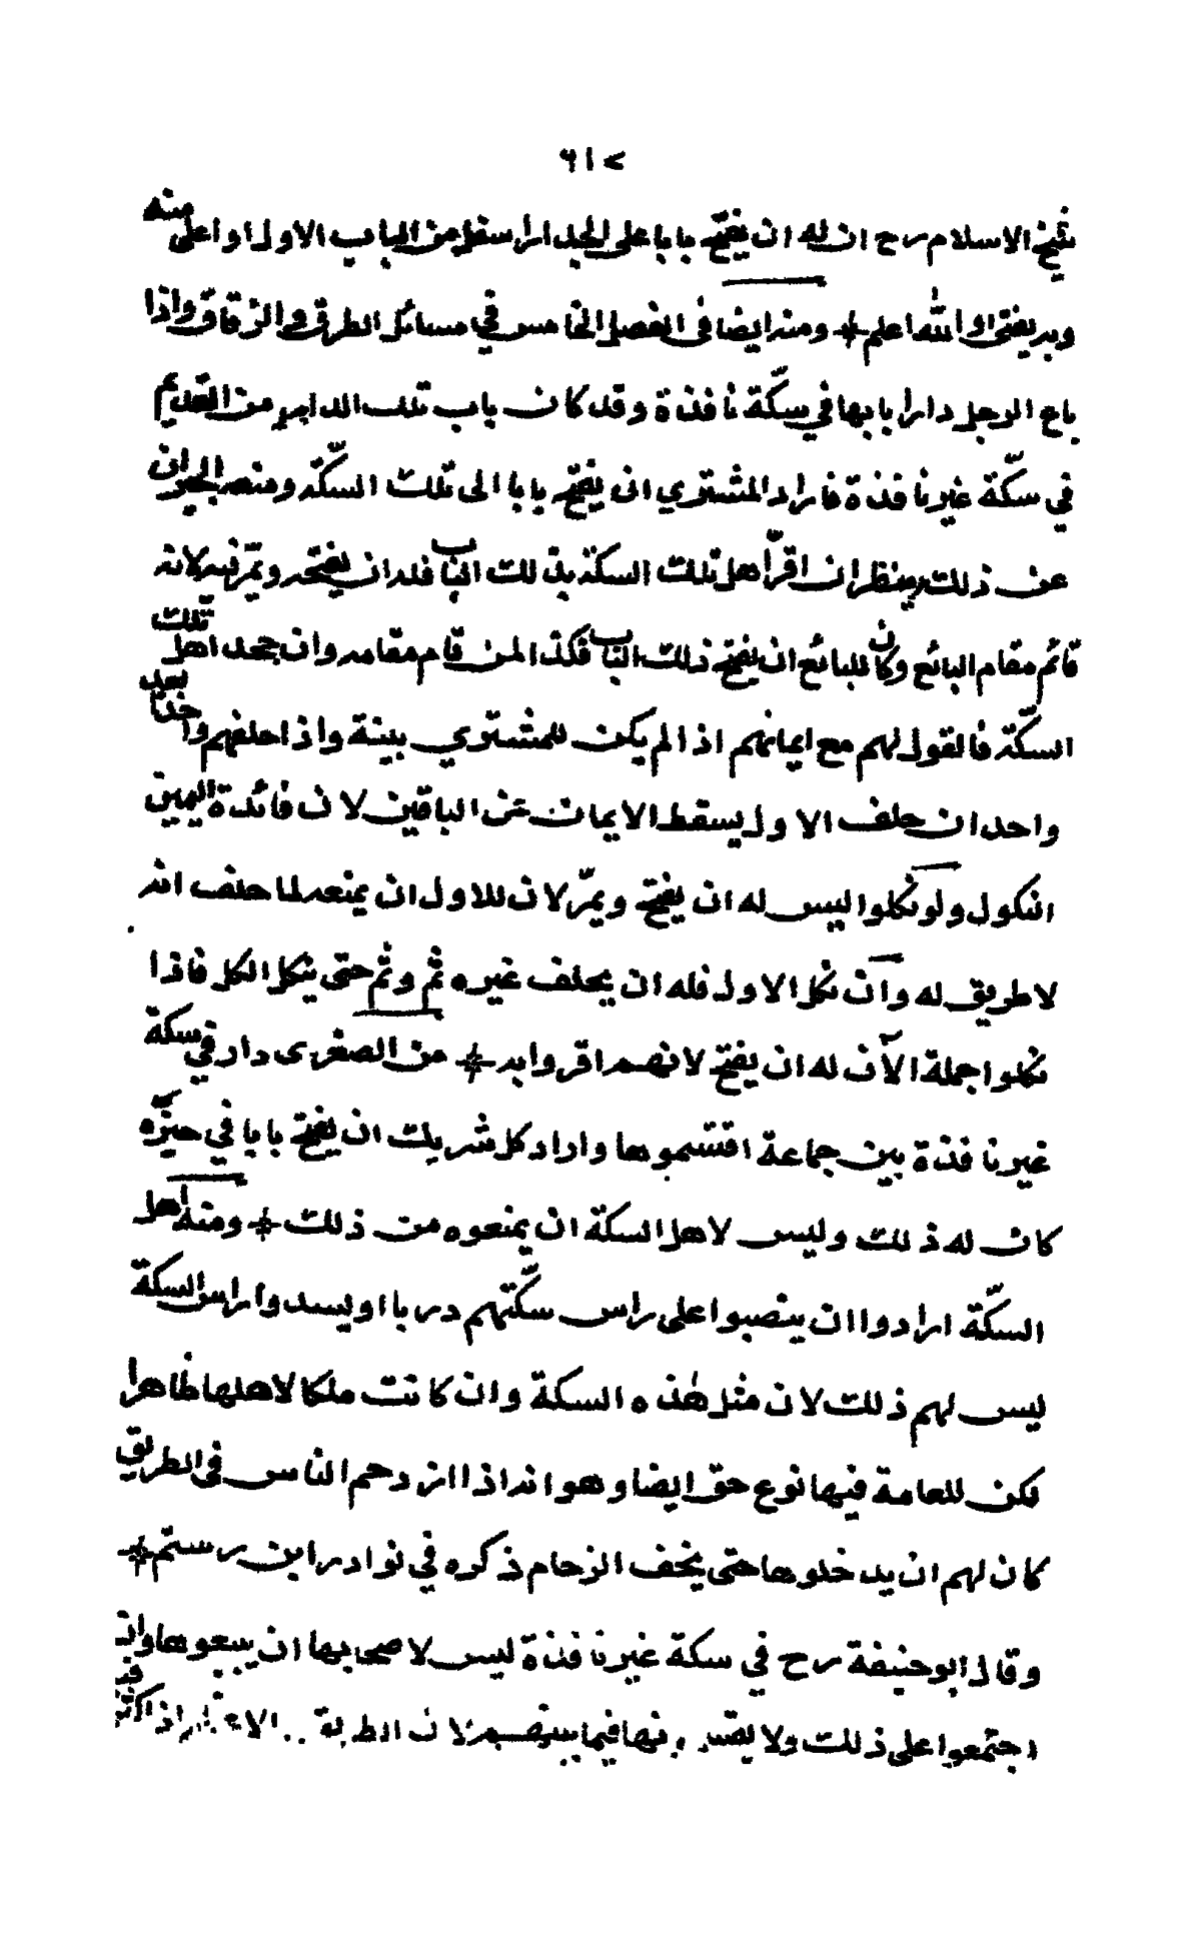 ٦١٢
شيخ الاسلام رح ان له ان يفتح بابا على الجبل اراسفل من الباب الاول او اعلى منه
وبه يفتى والله اعلم ومنه ايضا فى الفصل الخامس في مسائل الطرق والزقاق واذا
باع الرجل دارا بابها في سكّة نافذة وقد كان باب تلك الدار من القديم
في سكّة غير نافذة فاراد المشتري ان يفتح بابا الى تلك السكّة ومنعه الجيران
عن ذلك ينظر ان اقرّ اهل تلك السكة بذلك الباب فله ان يفتحه ويمرّ فيه لانه
قائم مقام البائع وكان للبائع ان يفتح ذلك الباب فكذا لمن قام مقامه وان جحد اهل تلك
السكّة فالقول لهم مع ايمانهم اذا لم يكن للمشتري بينة واذا حلفهم واحدا بعد
واحد ان حلف الاول يسقط الايمان عن الباقين لان فائدة اليمين
النكول ولو نكلوا ليس له ان يفتح ويمرّ لان للاول ان يمنعه لما حلف انه
لا طريق له وان نكل الاول فله ان يحلف غيره ثم وثم حتى ينكل الكل فاذا
نكلوا جملة الآن له ان يفتح لانهم اقروا به من الصغرى دار في سكة
غير نافذة بين جماعة اقتسموها واراد كل شريك ان يفتح بابا في حيّزه
كان له ذلك وليس لاهل السكة ان يمنعوه من ذلك ومنه اهل
السكّة ارادوا ان ينصبوا على راس سكّتهم دربا او يسدوا راس السكة
ليس لهم ذلك لان مثل هذه السكة وان كانت ملكا لاهلها ظاهرا
لكن للعامة فيها نوع حق ايضا وهو انه اذا ازدحم الناس فى الطريق
كان لهم ان يدخلوها حتى يخف الزحام ذكره في نوادر ابن رستم
وقال ابو حنيفة رح في سكة غير نافذة ليس لاصحابها ان يبيعوها وان
اجتمعوا على ذلك ولا فيما بينهم لان اذا كثر فيه